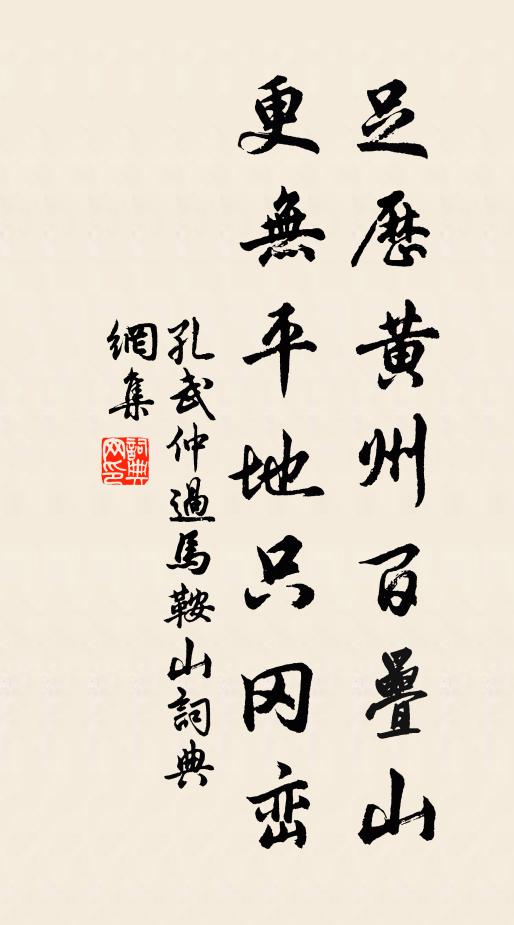 足歷黃州百疊山
更無平地只冈峦
孔武仲過馬鞍山詞典
網集
詞典網印